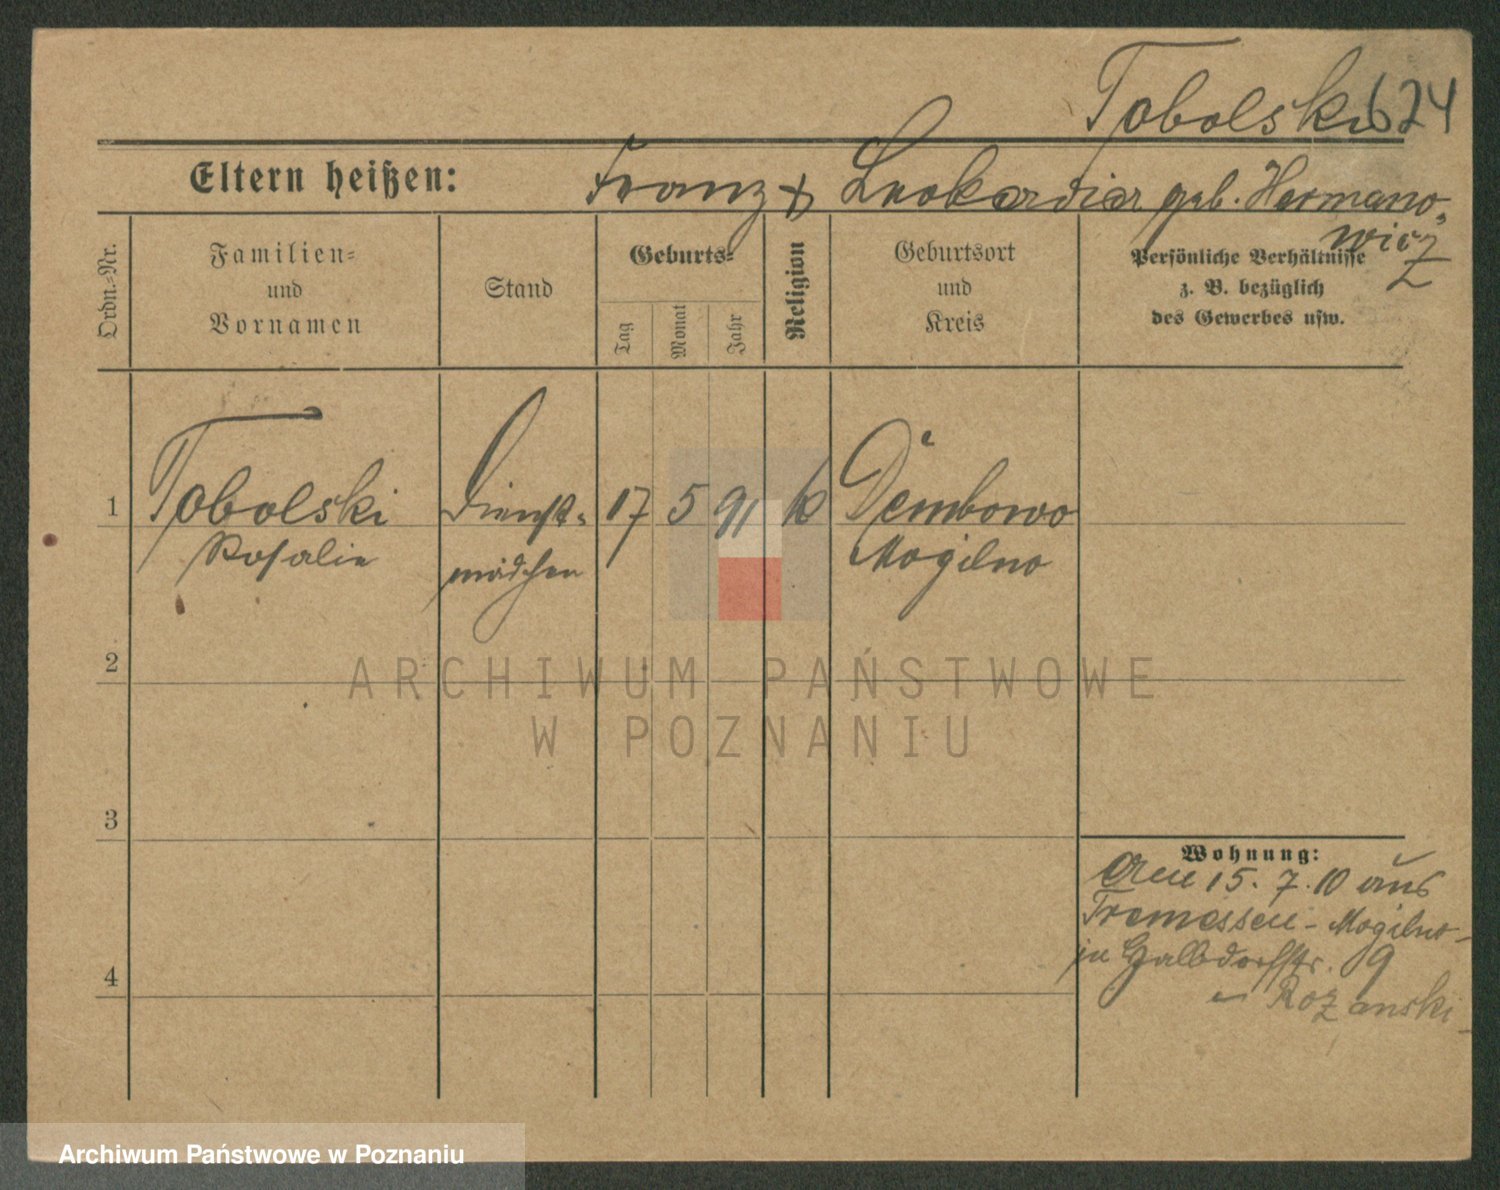 Tobolski 624
Eltern heißen: Franz & Leokardia geb. Hermano-
wicz
Ordn.-Nr.
Familien-
und
Vornamen
Stand
Geburts-
Tag
Monat
Jahr
Religion
Geburtsort
und
Kreis
Persönliche Verhältnisse
z. B. bezüglich
des Gewerbes usw.
1 Tobolski Dienst- 17 5 91 k Dembowo
Rosalie mädchen Mogilno
2
3
4
Wohnung:
15. 7. 10 aus
Tremessen - Mogilno -
in Halbdorfstr. 19
Rozanski
ARCHIWUM PAŃSTWOWE
W POZNANIU
Archiwum Państwowe w Poznaniu